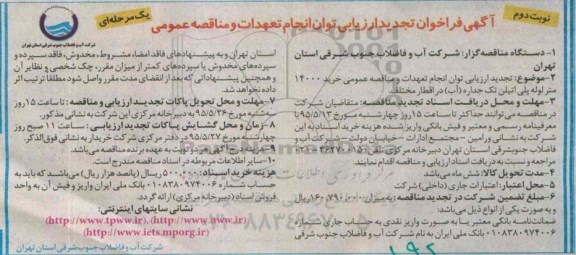 نوبت دوم
آگهی فراخوان تجدید ارزیابی توان انجام تعهدات و مناقصه عمومی
یک مرحله‌ای
شرکت آب و فاضلاب جنوب شرقی استان تهران
۱- دستگاه مناقصه گزار: شرکت آب و فاضلاب جنوب شرقی استان
تهران
۲-موضوع: تجدید ارزیابی توان انجام تعهدات و مناقصه عمومی خرید ۱۴۰۰۰
متر لوله پلی اتیلن تک جداره (آب) در اقطار مختلف
۳-مهلت و محل دریافت اسناد تجدید مناقصه: متقاضیان شرکت
در مناقصه می‌توانند حداکثر تا ساعت ۱۵ روز چهارشنبه مورخ ۹۵/۵/۱۳ با
معرفی‌نامه رسمی و معتبر و فیش بانکی واریز شده هزینه خرید اسناد به این
شرکت به نشانی ورامین - مجتمع ادارات - خیابان دولت - شرکت آب و
فاضلاب جنوب‌شرقی استان تهران دبیرخانه مرکزی تلفن
مراجعه و نسبت به دریافت اسناد ارزیابی و مناقصه اقدام نمایند.
۴-مدت تحویل کالا: شش ماه می‌باشد
۵-محل اعتبار: اعتبارات جاری (داخلی) شرکت
۶-مبلغ تضمین شرکت در تجدید مناقصه: به میزان ریال
و به صورت یکی از انواع ذیل می‌باشد:
ضمانت‌نامه بانکی معتبر و یا به صورت واریز نقدی به حساب جاری سیبا شماره
۰۱۰۸۳۸۰۹۷۴۰۰۶ بانک ملی ایران به نام شرکت آب و فاضلاب جنوب شرقی
استان تهران و به پیشنهادهای فاقد امضاء مشروط، مخدوش، فاقد سپرده و
سپرده‌های مخدوش یا سپرده‌های کمتر از میزان مقرر، چک شخصی و نظایر آن
و همچنین پیشنهاداتی که بعد از انقضای مدت مقرر واصل شود مطلقا ترتیب اثر
داده نخواهد شد.
۷-مهلت و محل تحویل پاکات تجدید ارزیابی و مناقصه: تا ساعت ۱۵ روز
سه‌شنبه مورخ ۹۵/۵/۲۶ به دبیرخانه مرکزی این شرکت به نشانی مذکور.
۸-زمان و محل گشایش پاکات تجدید ارزیابی: ساعت ۱۱ صبح روز
چهارشنبه مورخ ۹۵/۵/۲۷ در دفتر مرکزی شرکت خریدار به نشانی فوق‌الذکر.
به عهده برنده مناقصه می‌باشد.
۱۰-سایر اطلاعات مربوطه در اسناد مناقصه مندرج است.
هزینه خرید اسناد: ۵۰۰,۰۰۰ ریال (پانصد هزار ریال) می‌باشد که باید به
حساب شماره ۰۱۰۸۳۸۰۹۷۴۰۰۶ بانک ملی ایران واریز و فیش آن به واحد
فروش اسناد (دبیرخانه مرکزی) ارائه گردد.
نشانی سایتهای اینترنتی:
(http://www.tpww.ir), (http://www.nww.ir)
(http://www.iets.mporg.ir)
شرکت آب و فاضلاب جنوب شرقی استان تهران